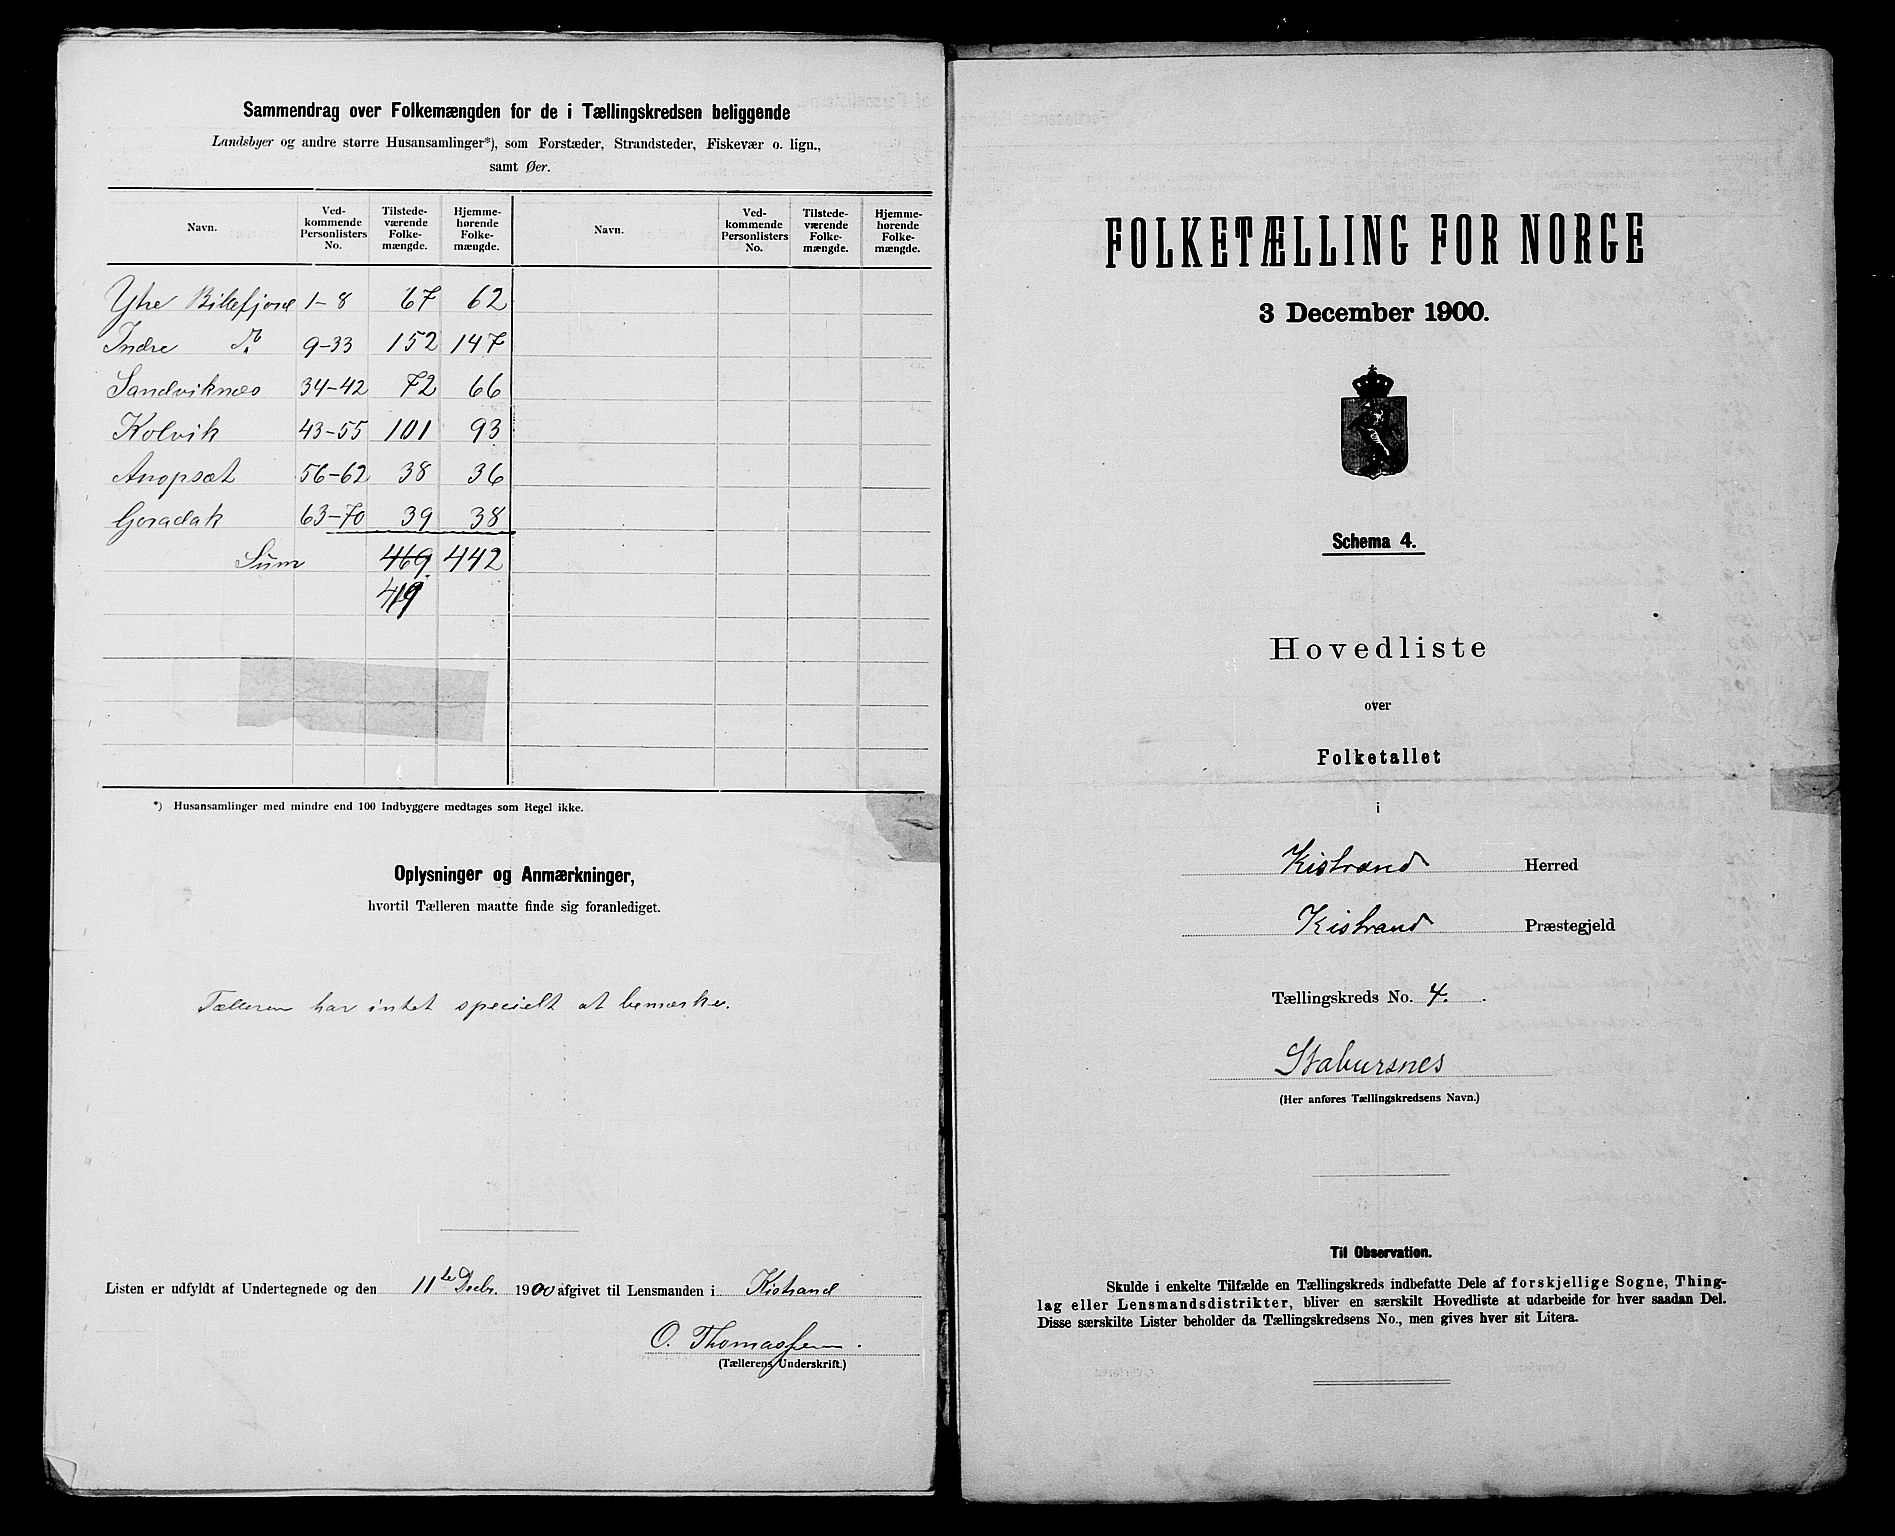 Sammendrag over Folkemængden for de i Tællingskredsen beliggende
Landsbyer og andre større Husansamlinger*), som Forstæder, Strandsteder, Fiskevær o. lign.,
samt Øer.
Navn. Ved-kommende Personlisters No. Tilstede-værende Folke-mængde. Hjemme-hørende Folke-mængde. Navn. Ved-kommende Personlisters No. Tilstede-værende Folke-mængde. Hjemme-hørende Folke-mængde.
Ytre Billefjord 1-8 67 62
Indre Do 9-33 152 147
Sandviknæs 34-42 72 66
Kolvik 43-55 101 93
Anopsæt 56-62 38 36
Goradak 63-70 39 38
Sum 469 442
419
*) Husansamlinger med mindre end 100 Indbyggere medtages som Regel ikke.
Oplysninger og Anmærkninger,
hvortil Tælleren maatte finde sig foranlediget.
Tælleren har intet specielt at bemærke.
Listen er udfyldt af Undertegnede og den 11te Decbr. 1900 afgivet til Lensmanden i Kistrand
O. Thomassen.
(Tællerens Underskrift.)
FOLKETÆLLING FOR NORGE
3 December 1900.
Schema 4.
Hovedliste
over
Folketallet
i
Kistrand Herred
Kistrand Præstegjeld
Tællingskreds No. 4.
Stabursnes
(Her anføres Tællingskredsens Navn.)
Til Observation.
Skulde i enkelte Tilfælde en Tællingskreds indbefatte Dele af forskjellige Sogne, Thing-
lag eller Lensmandsdistrikter, bliver en særskilt Hovedliste at udarbeide for hver saadan Del.
Disse særskilte Lister beholder da Tællingskredsens No., men gives hver sit Litera.